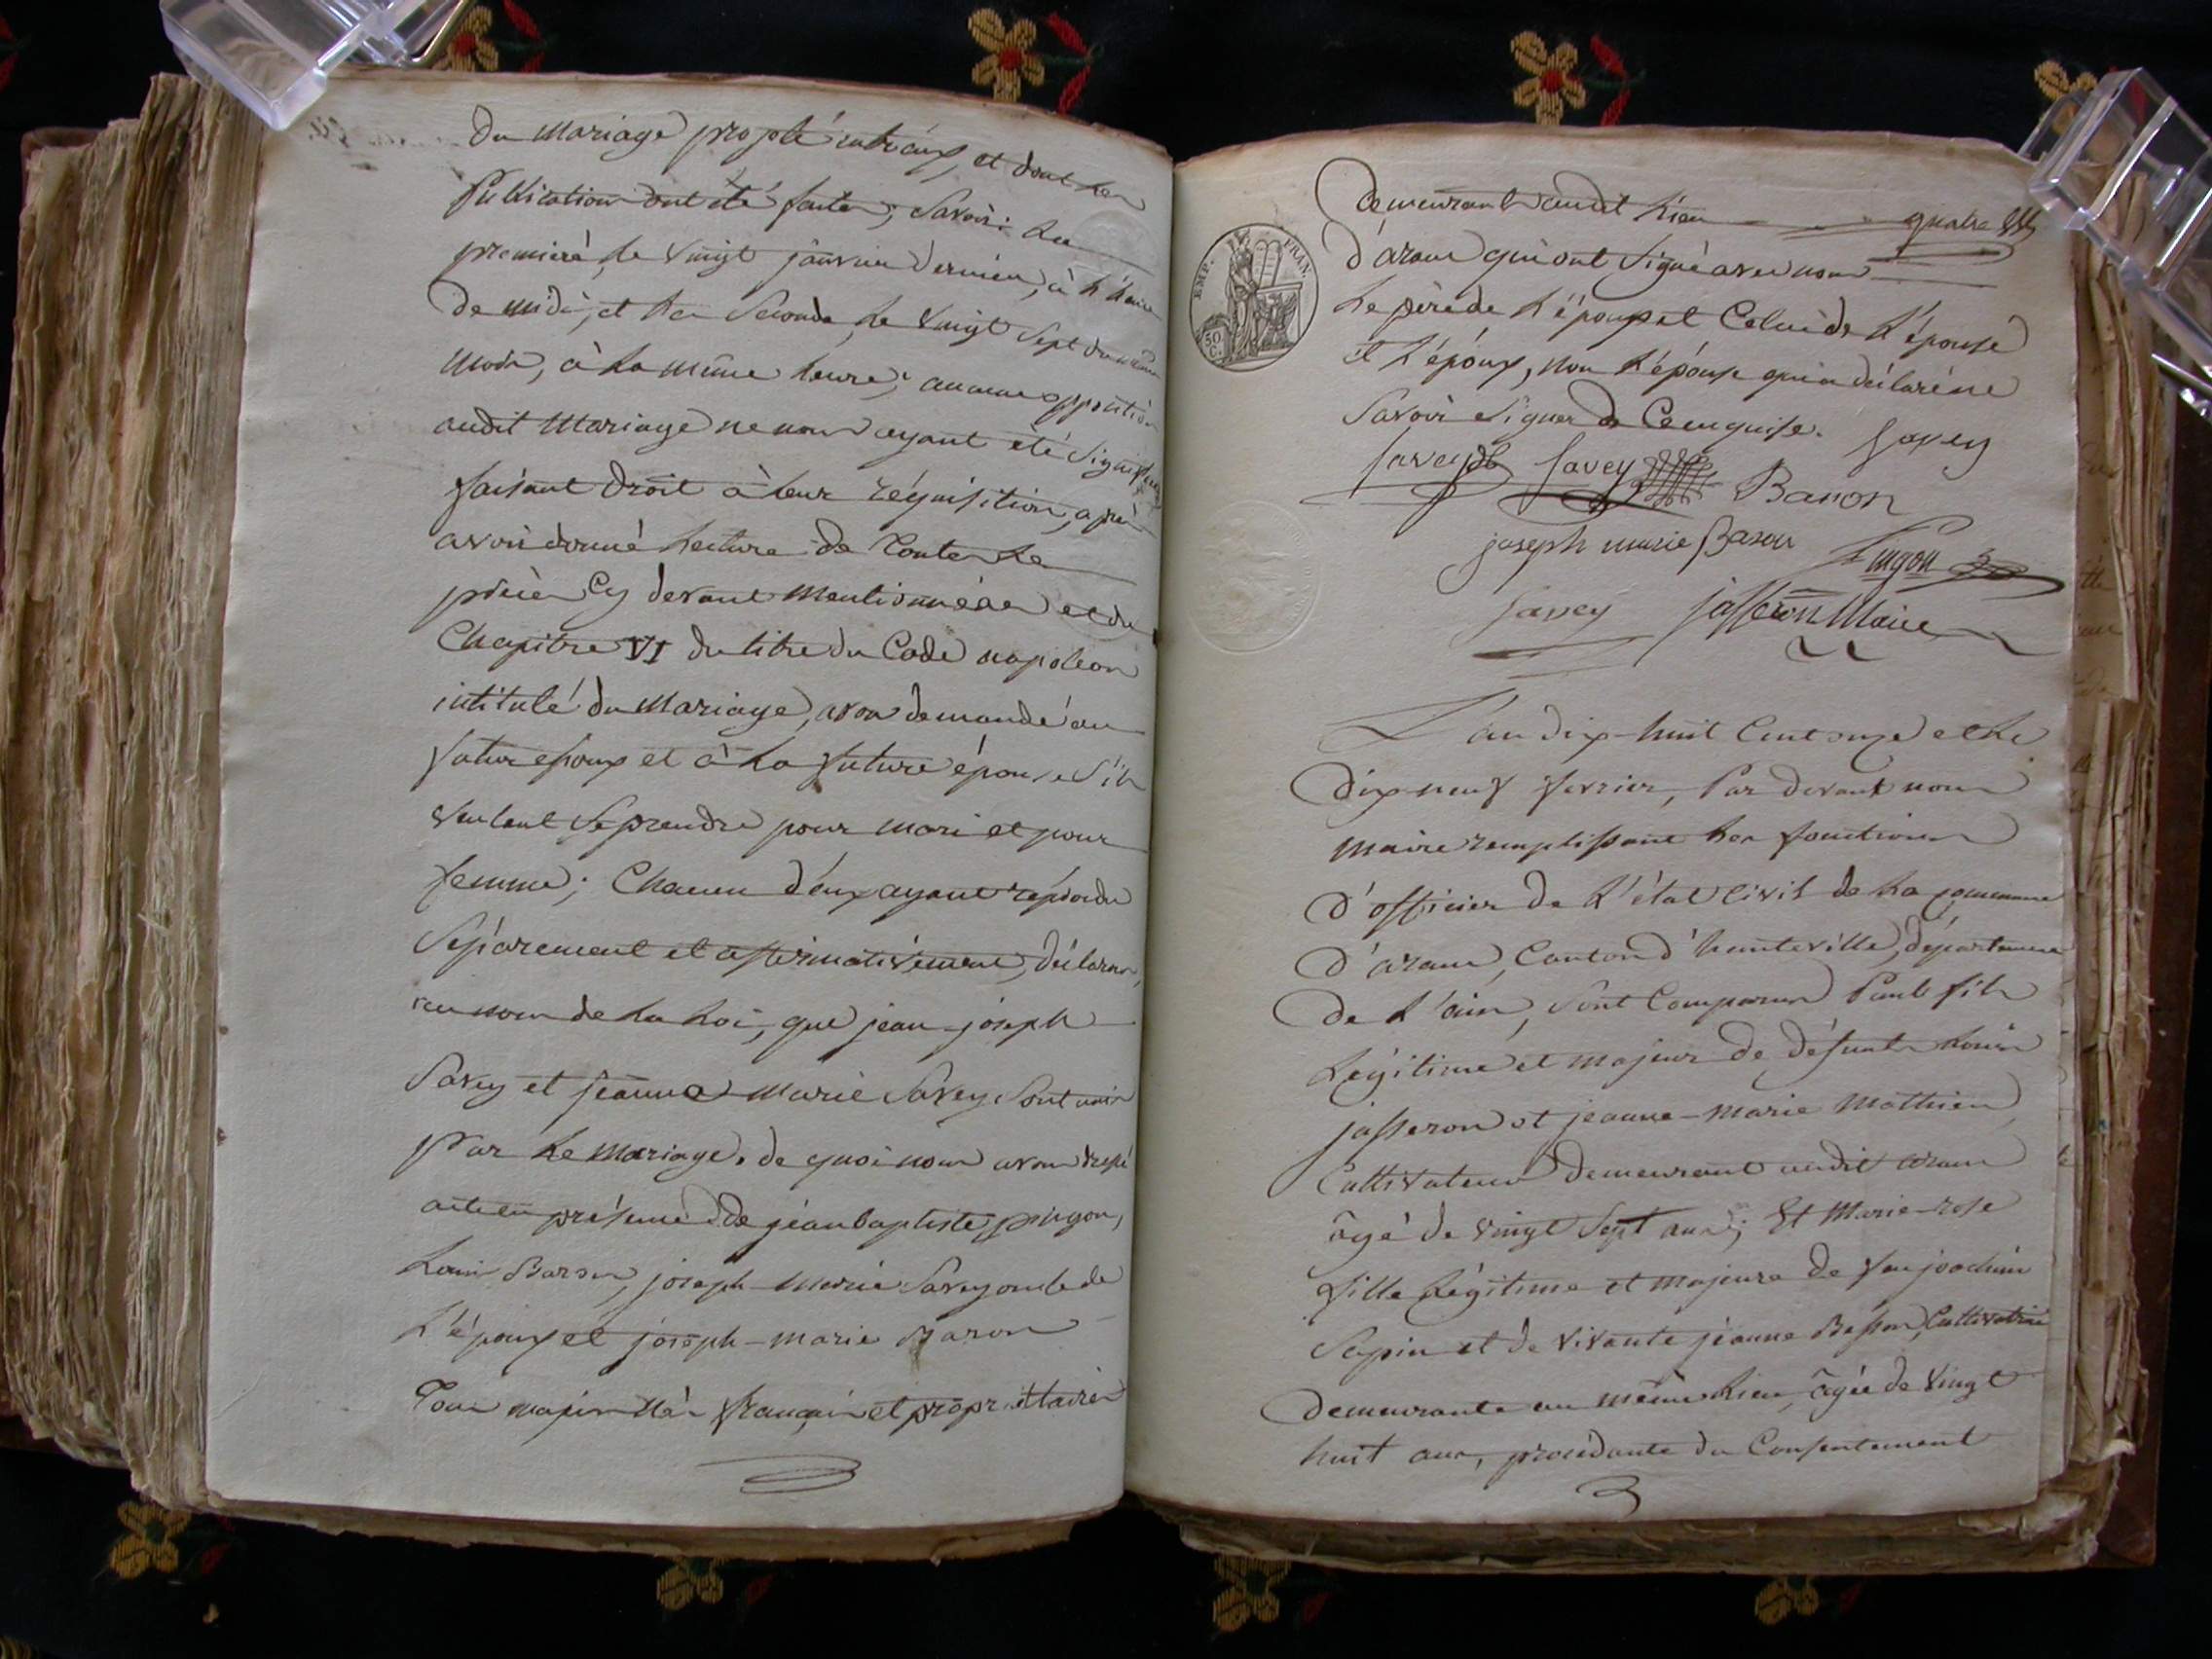 du mariage projeté entr'eux, et dont les
Publications ont été faites; Savoir: La
premiere, le vingt janvier dernier, à L'heure
de midi, et La Seconde, Le vingt Sept du même
mois, à La même heure; aucune opposition
audit Mariage ne nous ayant été Signifiée
faisant droit à leur réquisition, après
avoir donné Lecture de toutes Les
pièces Cy devant Mentionnées et du
Chapitre VI du titre du Code napoleon
intitulé du Mariage, avons demandé au
futur époux et à La future épouse S'ils
veulent Se prendre pour mari et pour
femme; Chacun d'eux ayant répondu
Séparement et affirmativement, déclarons,
au nom de La Loi, que jean-joseph
Savey et jeanne Marie Savey Sont unis
Par Le mariage. de quoi nous avons dressé
acte en présence de jean baptiste pingon,
Louis Baron, joseph-Marie Savey oncle de
L'époux et joseph-marie Baron
Tous majeurs nés français et proprietaires
demeurant audit Lieu
d'aranc qui ont Signé avec nous
Le père de L'époux et Celui de L'épouse
et L'époux, non L'épouse qui a déclaré ne
Savoir Signer de Ce enquise. Savey
Savey Savey Baron
joseph marie Baron Pingon
Savey Jasseron Maire
EMP. FRAN.
50 C.
L'an dix-huit Cent onze et Le
dix-neuf fevrier, Par devant nous
maire remplissant Les fonctions
d'officier de L'état Civil de La commune
d'aranc, Canton d'hauteville, département
de L'ain, Sont Comparus Paul fils
Légitime et majeur de défunts Louis
jasseron et jeanne-marie Mathieu
Cultivateur demeurant audit aranc
âgé de vingt Sept ans; Et Marie-rose
fille Légitime et majeure de feu joachim
Sapin et de vivante jeanne Besson, Cultivatrice
demeurante au même Lieu, âgée de vingt
huit ans, procédante du Consentement